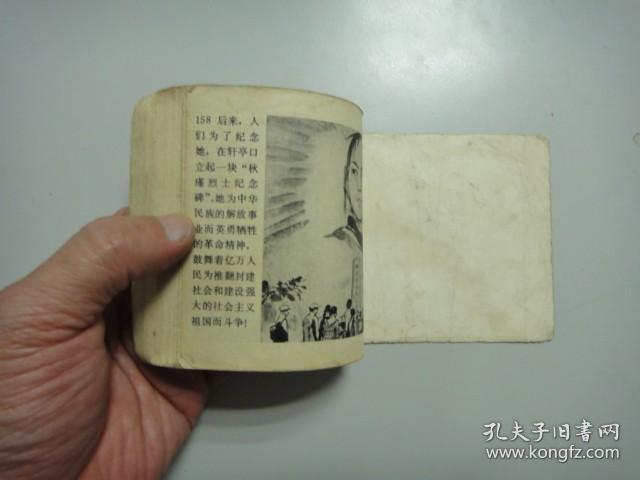 158 后来，人
们为了纪念
她，在轩亭口
立起一块“秋
瑾烈士纪念
碑”。她为中华
民族的解放事
业而英勇牺牲
的革命精神，
鼓舞着亿万人
民为推翻封建
社会和建设强
大的社会主义
祖国而斗争！
孔夫子旧书网
www.kongfz.com